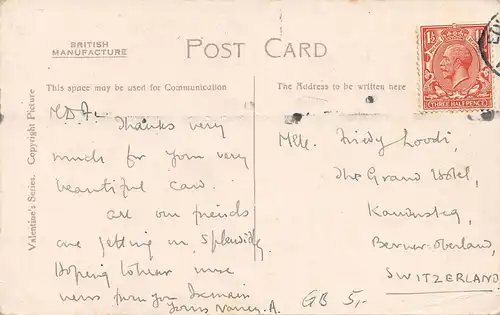 BRITISH
MANUFACTURE
POST CARD
This space may be used for Communication
The Address to be written here
Valentine's Series. Copyright Picture
1½
THREE HALFPENCE
Thanks very
much for your very
beautiful card.
are our friends
are getting on splendidly
Hoping to hear more
news from you I remain
Yours Nancy. A.
Mlle. Friedy
The Grand Hotel,
Kandersteg,
Berner-Oberland,
SWITZERLAND.
GB 5,-